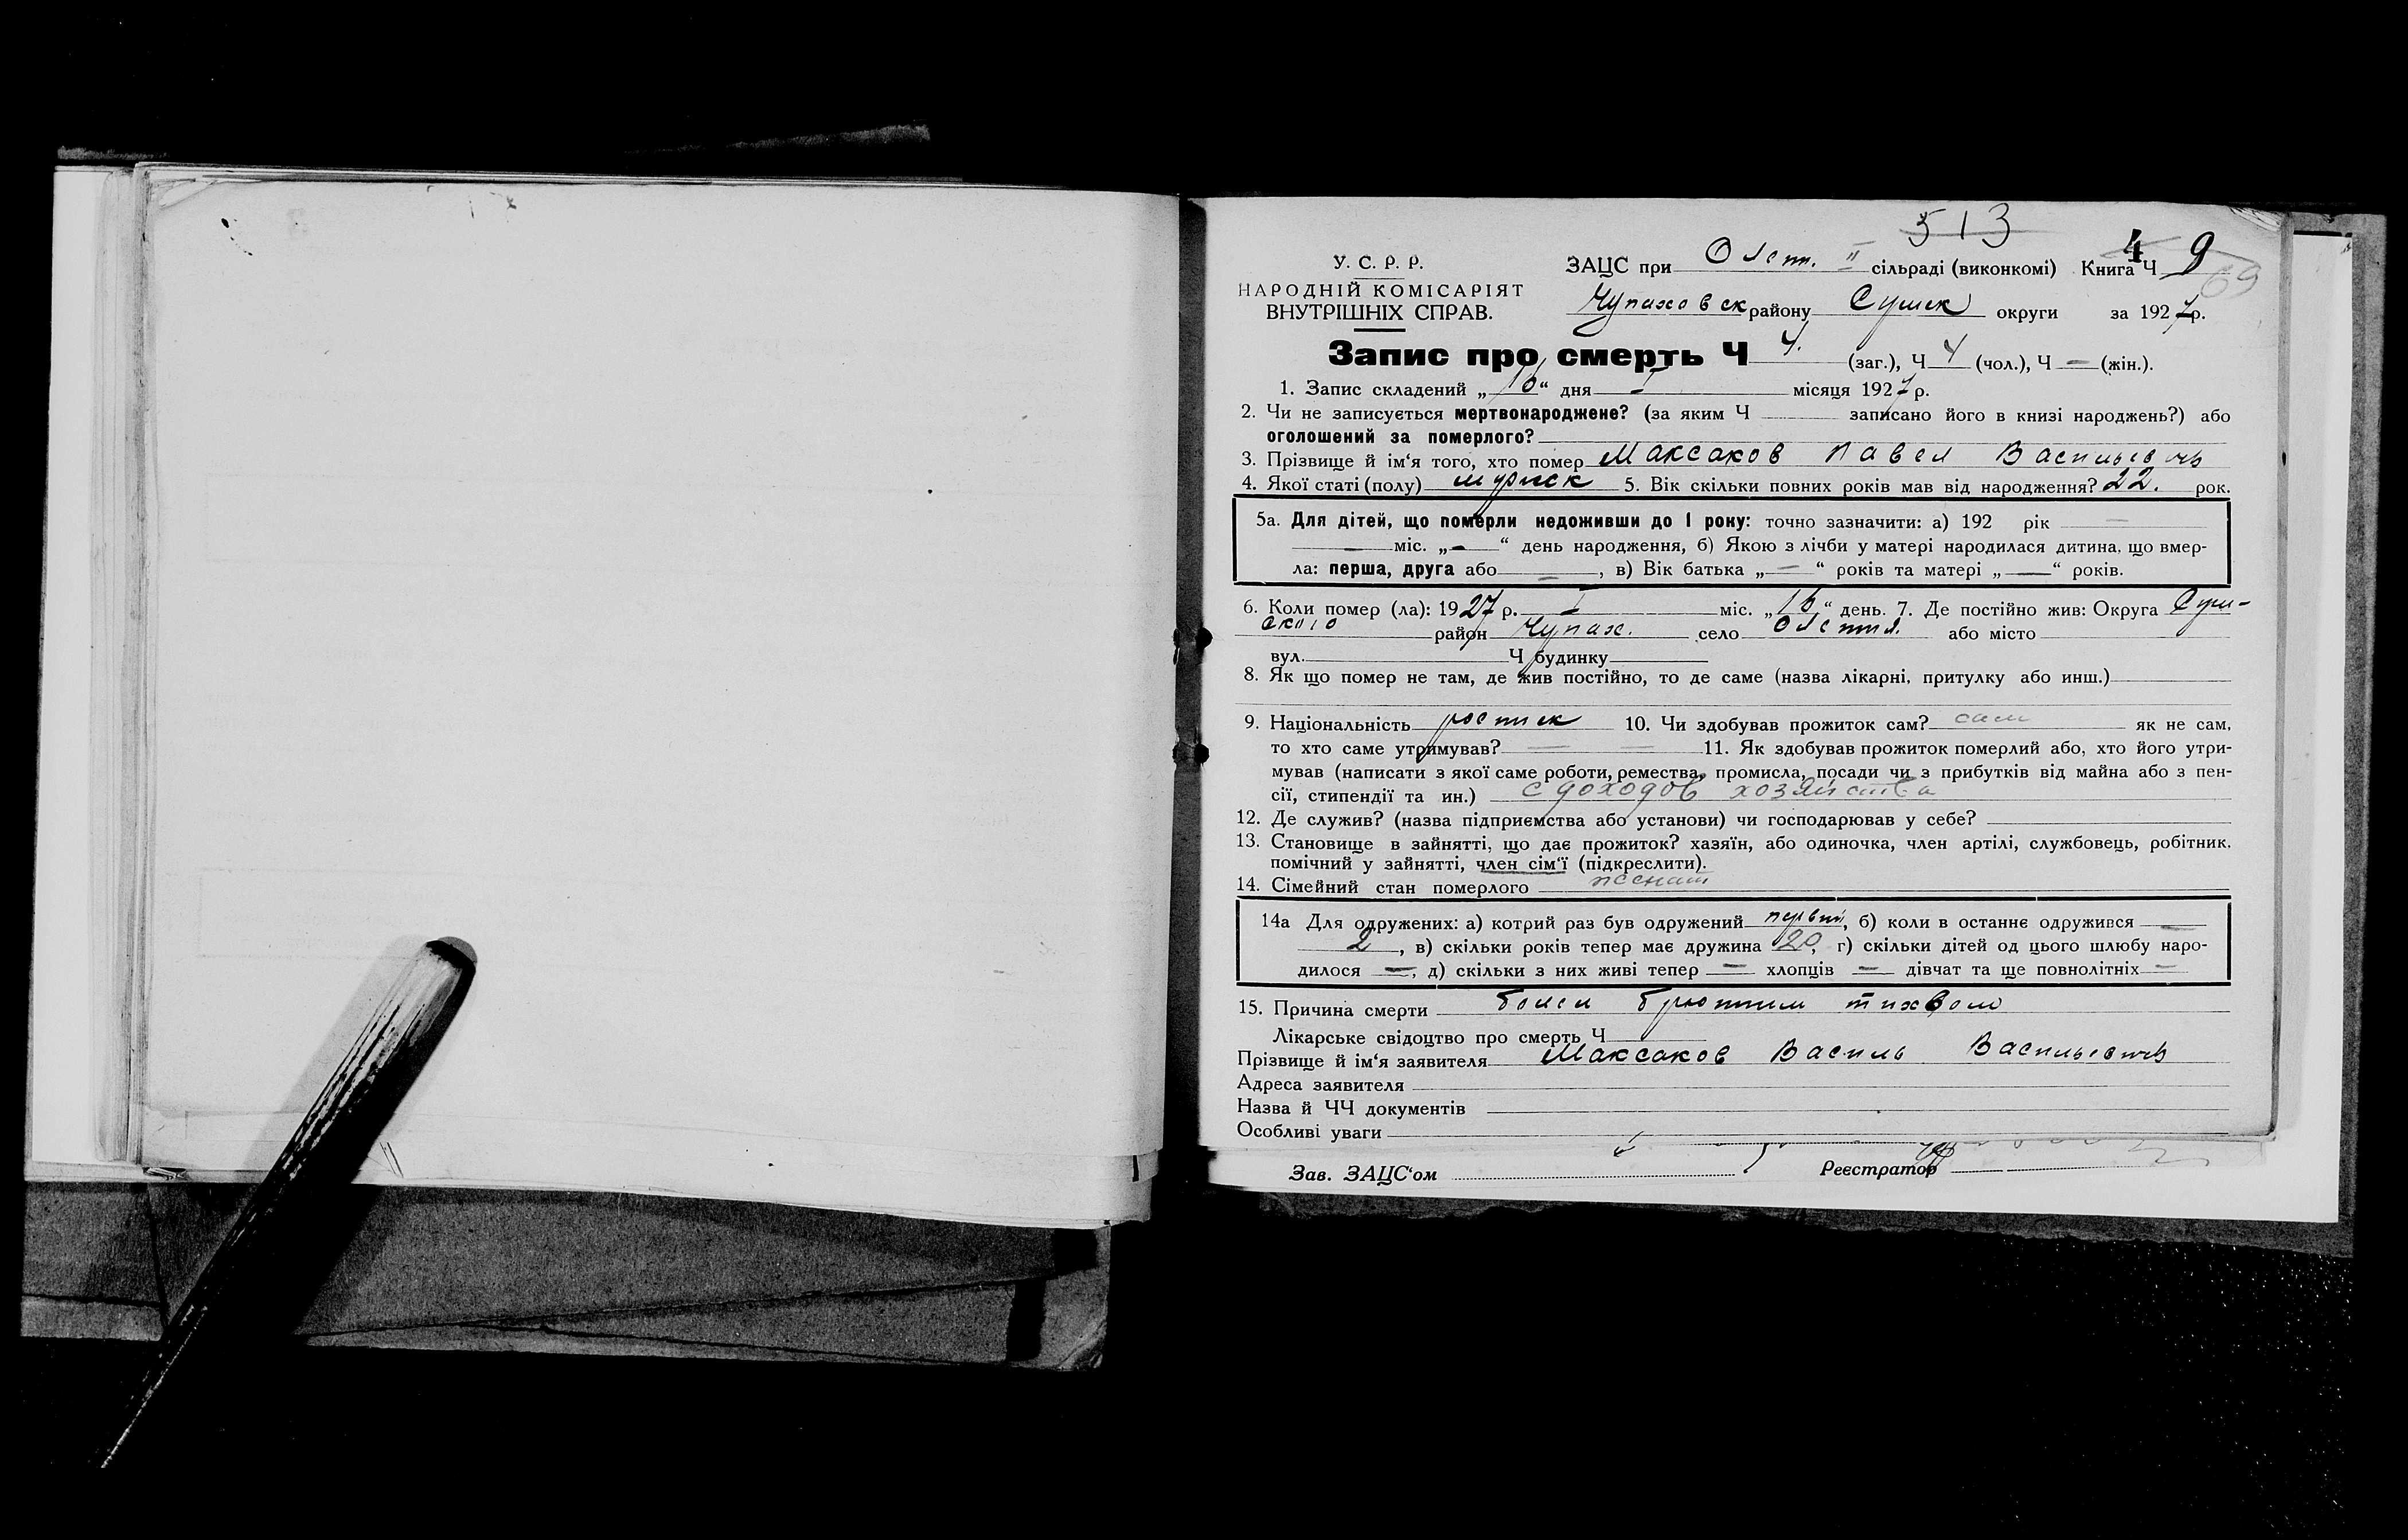 513
У. С. Р. Р.
НАРОДНІЙ КОМІСАРІЯТ
ВНУТРІШНІХ СПРАВ.
ЗАЦС при Олст. II сільраді (виконкомі) Книга Ч 4 9
69
Чупаховск району Сумск округи за 1927 р.
Запис про смерть Ч 4. (заг.), Ч 4 (чол.), Ч — (жін.).
1. Запис складений „16“ дня I місяця 1927 р.
2. Чи не записується мертвонароджене? (за яким Ч записано його в книзі народжень?) або
оголошений за померлого?
3. Прізвище й ім‘я того, хто помер Максаков Павел Васильевичь
4. Якої статі (полу) мужск 5. Вік скільки повних років мав від народження? 22. рок.
5а. Для дітей, що померли недоживши до 1 року: точно зазначити: а) 192 рік —
— міс. „—“ день народження, б) Якою з лічби у матері народилася дитина, що вмер-
ла: перша, друга або —, в) Вік батька „—“ років та матері „—“ років.
6. Коли помер (ла): 1927 р. I міс. „16“ день. 7. Де постійно жив: Округа Сум-
ского район Чупах. село або місто
вул. Ч будинку
8. Як що помер не там, де жив постійно, то де саме (назва лікарні, притулку або инш.)
9. Національність 10. Чи здобував прожиток сам? сам як не сам,
то хто саме утримував? — — 11. Як здобував прожиток померлий або, хто його утри-
мував (написати з якої саме роботи, ремества, промисла, посади чи з прибутків від майна або з пен-
сії, стипендії та ин.) с доходов хозяйства
12. Де служив? (назва підприємства або установи) чи господарював у себе?
13. Становище в зайнятті, що дає прожиток? хазяїн, або одиночка, член артілі, службовець, робітник,
помічний у зайнятті, член сім‘ї (підкреслити).
14. Сімейний стан померлого женат
14а Для одружених: а) котрий раз був одружений первий, б) коли в останнє одружився —
2, в) скільки років тепер має дружина 20, г) скільки дітей од цього шлюбу наро-
дилося —, д) скільки з них живі тепер — хлопців — дівчат та ще повнолітніх —
15. Причина смерти болел брюшним тихвом
Лікарське свідоцтво про смерть Ч
Прізвище й ім‘я заявителя Максаков Василь Васильевичь
Адреса заявителя
Назва й ЧЧ документів
Особливі уваги
Зав. ЗАЦС‘ом Реєстратор